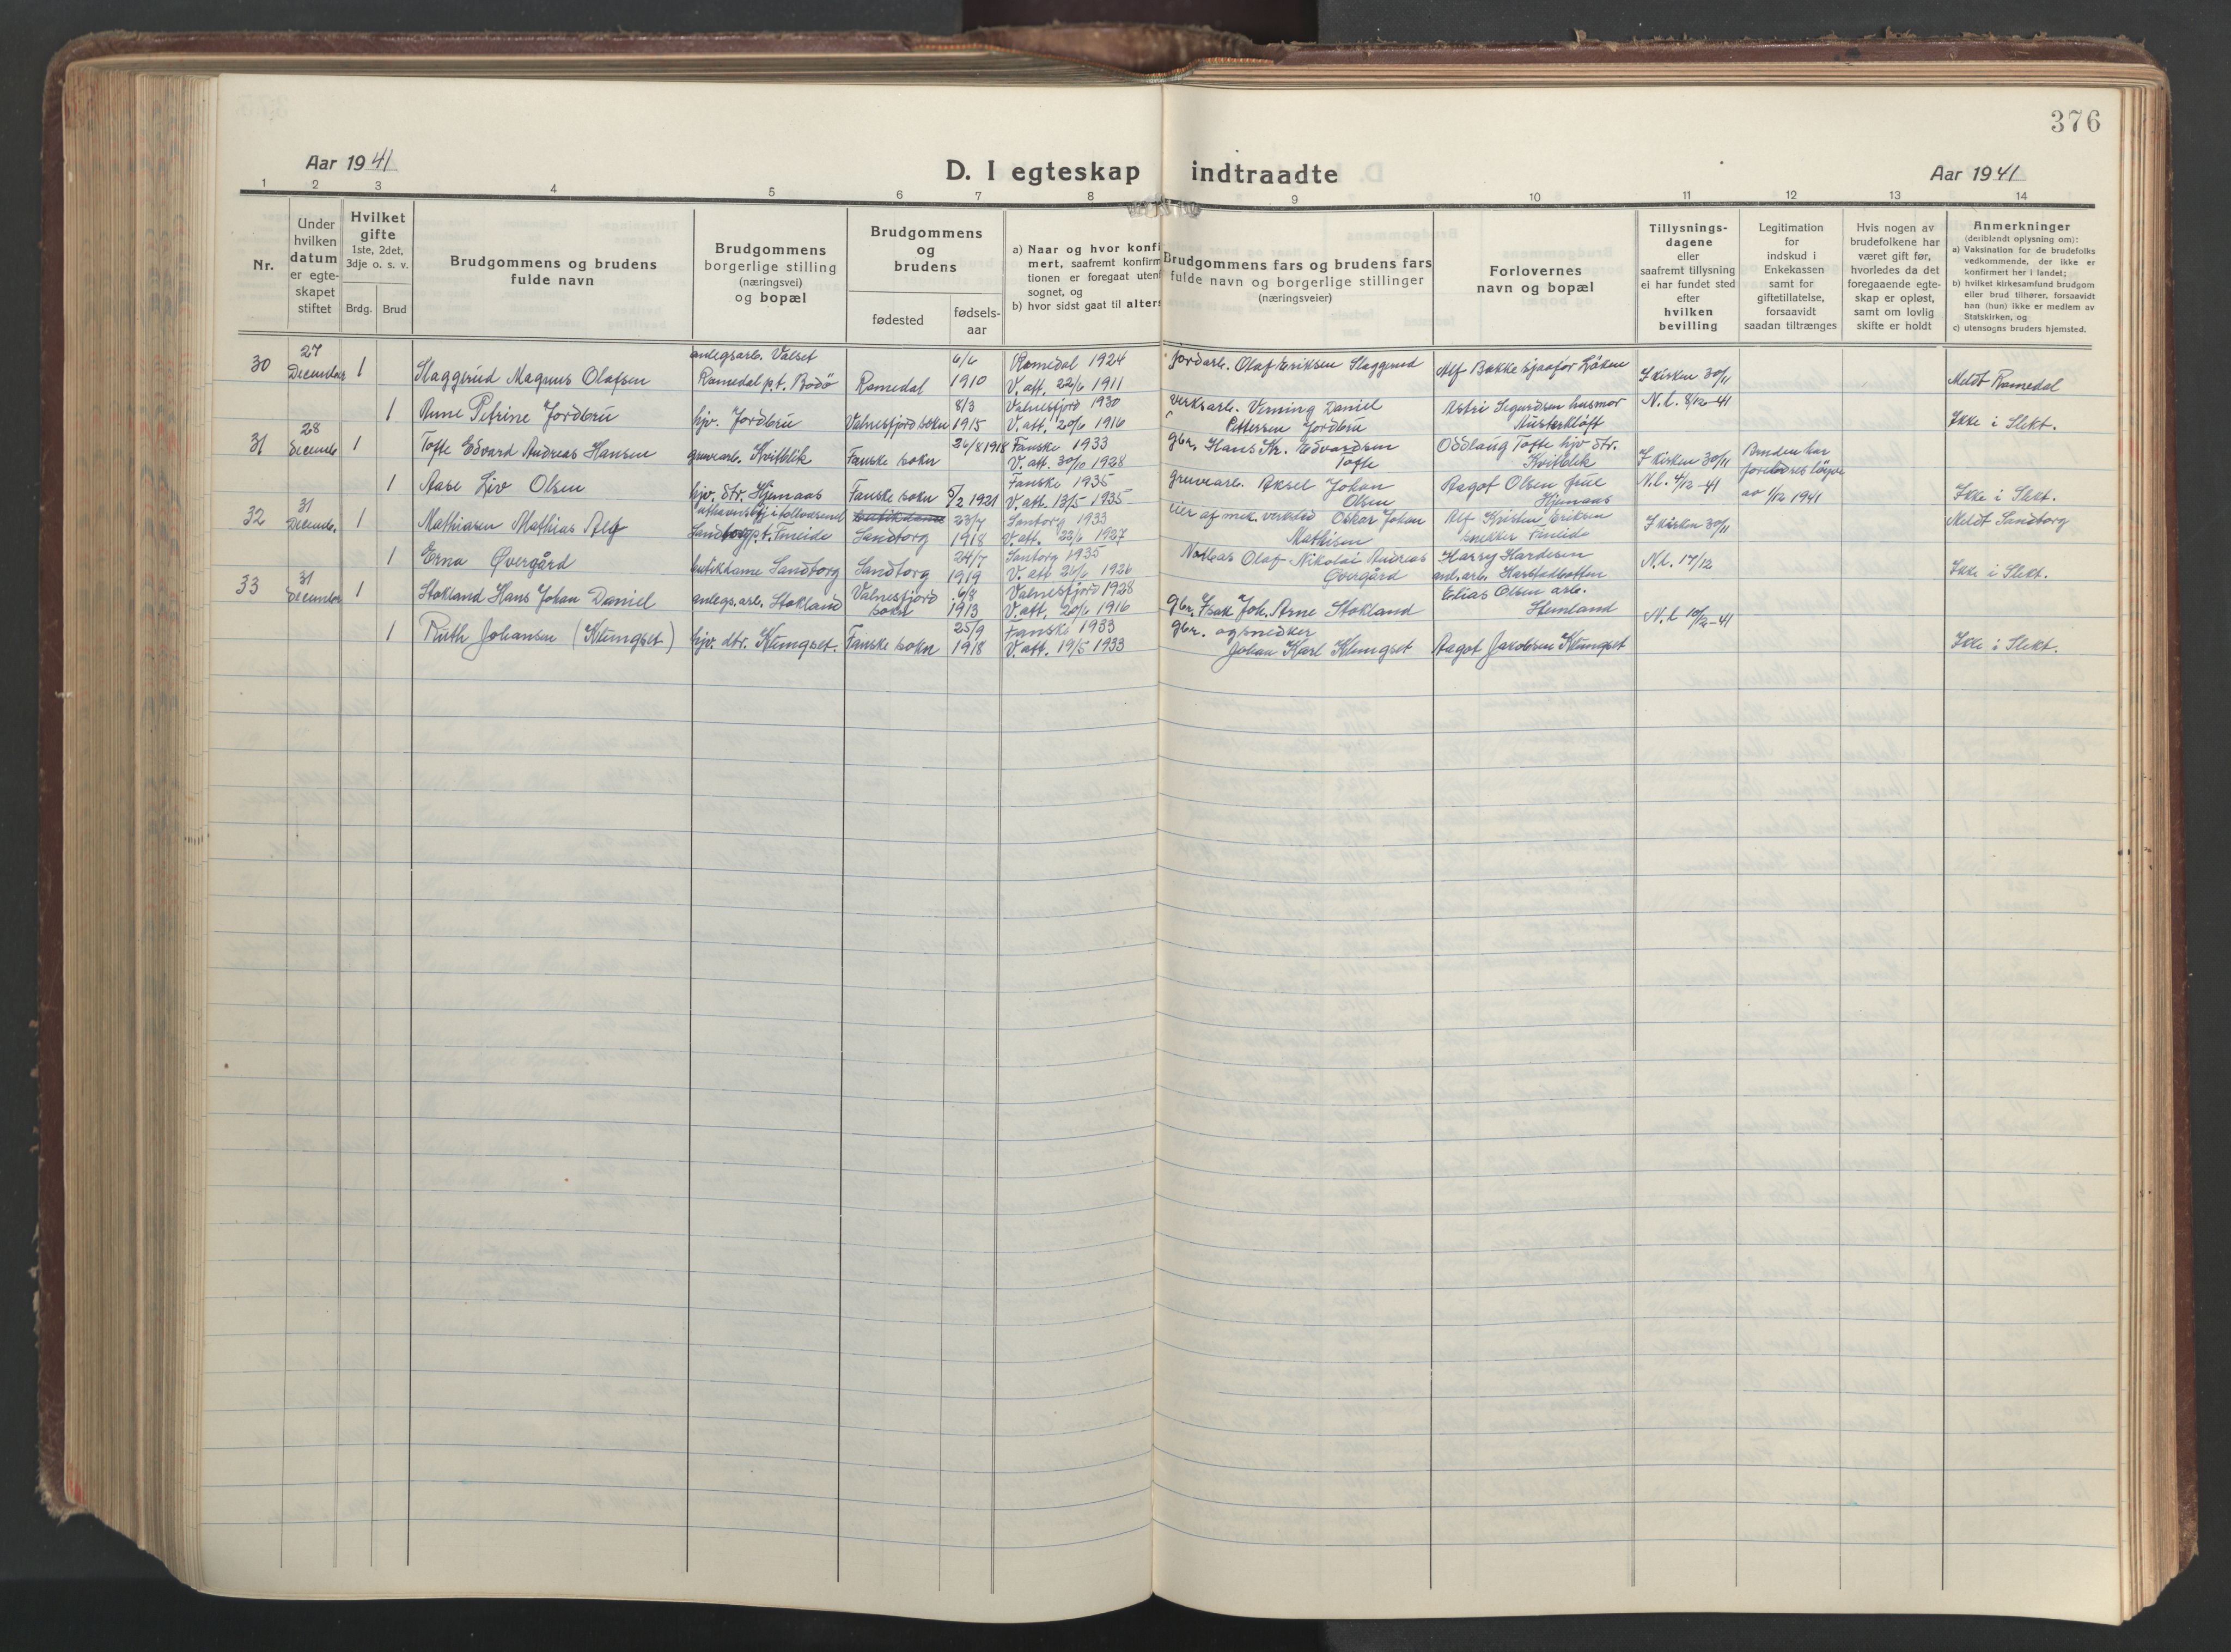 376
Aar 1941
D. I egteskap indtraadte
Aar 1941
1 2 3 4 5 6 7 8 9 10 11 12 13 14
Nr.
Under
hvilken
datum
er egte-
skapet
stiftet
Hvilket
gifte
1ste, 2det,
3dje o. s. v.
Brdg. Brud
Brudgommens og brudens
fulde navn
Brudgommens
borgerlige stilling
(næringsvei)
og bopæl
Brudgommens
og
brudens
fødested
fødsels-
aar
a) Naar og hvor konfi
mert, saafremt konfirm
tionen er foregaat uten
sognet, og
b) hvor sidst gaat til alters
Brudgommens fars og brudens fars
fulde navn og borgerlige stillinger
(næringsveier)
Forlovernes
navn og bopæl
Tillysnings-
dagene
eller
saafremt tillysning
ei har fundet sted
efter
hvilken
bevilling
Legitimation
for
indskud i
Enkekassen
samt for
giftetillatelse,
forsaavidt
saadan tiltrænges
Hvis nogen av
brudefolkene har
været gift før,
hvorledes da det
foregaaende egte-
skap er opløst,
samt om lovlig
skifte er holdt
Anmerkninger
(deriblandt oplysning om):
a) Vaksination for de brudefolks
vedkommende, der ikke er
konfirmert her i landet;
b) hvilket kirkesamfund brudgom
eller brud tilhører, forsaavidt
han (hun) ikke er medlem av
Statskirken, og
c) utensogns bruders hjemsted.
30
27
December
1
Slaggerud Magnus Olafsen
anlegsarb. Valset
Romedal p.t. Bodö
Romedal
6/6
1910
Romedal 1924
V. att. 22/6 1911
jordarb. Olaf Eriksen Slaggerud
Alf Bakke sjaafør Løken
I kirken 30/11
Meldt Romedal
1
Anne Petrine Jordbru
hjv. Jordbru
Valnesfjord sokn
8/3
1915
Valnesfjord 1930
V. att. 20/6 1916
verksarb. Daniel
Pettersen Jordbru
Astri Sigurdsen husmor
Austerkløft
N. l. 8/12-41
Ikke i Slekt.
31
28
Decemb.
1
Tofte Edvard Andreas Hansen
gruvearb. Kvitblik
Fauske sokn
26/8 1918
Fauske 1933
V. att. 30/10 1928
gbr. Hans Kr. Edvardsen
Tofte
Oddlaug Tofte hjv. dtr.
Kvitblik
I kirken 30/11
Bruden har
forelöses løyve
av 1/12 1941
1
Aase Liv Olsen
hjv. dtr. Hjemaas
Fauske sokn
5/2 1921
Fauske 1935
V. att. 13/5 1935
gruvearb. Aksel Johan
Olsen
Ragot Olsen frue
Hjemaas
N. l. 4/12-41
Ikke i Slekt.
32
31
Decemb.
1
Mathiasen Mathias Alf
Sandtorg p.t. Fineide
butikdame
Sandtorg
23/7
1918
Santorg 1933
V. att. 22/6 1927
eier af mek. verksted Oskar Johan
Mathisen
Alf Kristen Eriksen
snekker Fineide
I kirken 30/11
Meldt Sandtorg
1
Erna Øvergård
butikdame Sandtorg
Sandtorg
24/7
1919
Santorg 1935
V. att 21/6 1926
Notbas Olaf Nikolai Andreas
Øvergård
Harry Hardesen
anl. arb. Harstadbotten
N. l. 17/12
Ikke i Slekt.
33
31
December
1
Stokland Hans Johan Daniel
anlegs. arb. Stokland
Valnesfjord
sokn
6/8
1913
Valnesfjord 1928
V. att. 20/6 1916
gbr. Isak Joh. Arne Stokland
Elias Olsen arb.
Stemland
N. l 10/12-41
1
Ruth Johansen (Klungset)
hjv. dtr. Klungset.
Fauske sokn
25/9
1918
Fauske 1933
V. att. 19/5 1933
gbr. og snedker
Johan Karl Klungset
Ragot Jakobsen Klungset
Ikke i Slekt.